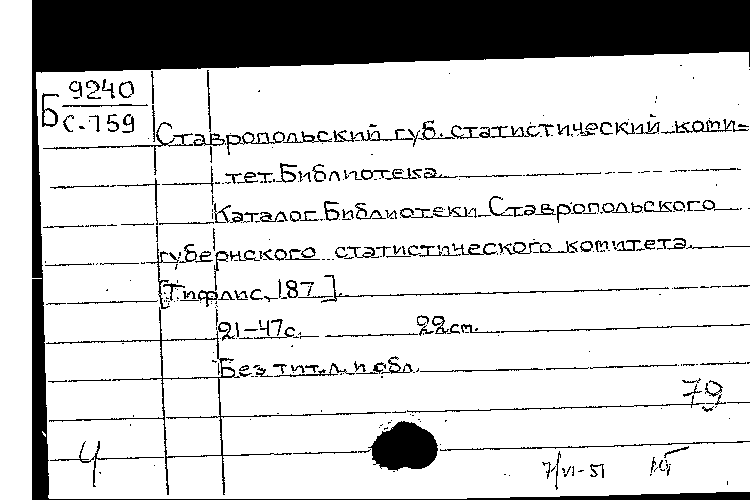 Б 9240
С-759
Ставропольский губ. статистический коми-
тет. Библиотека.
Каталог Библиотеки Ставропольского
губернского статистического комитета.
[Тифлис, 187 ].
21-47с. 22см.
Без тит. л. и обл.
79
Ч
7/VI-51